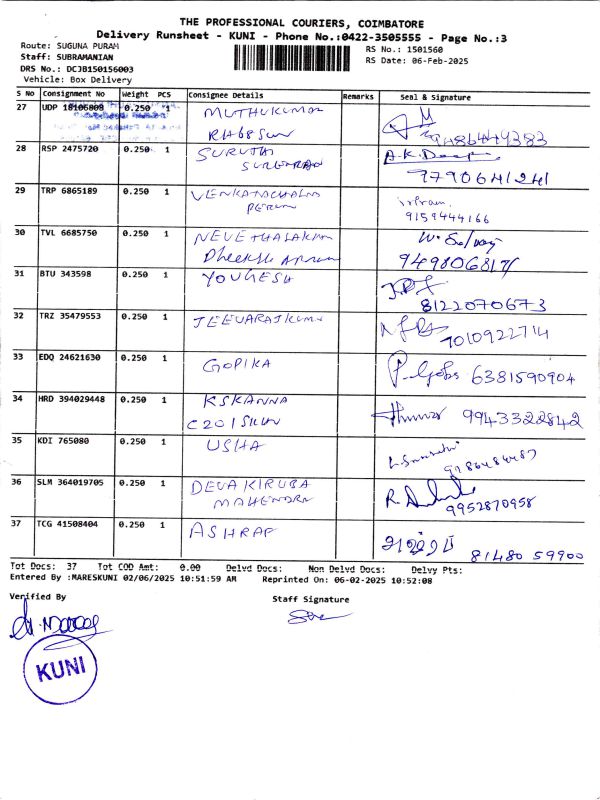 THE PROFESSIONAL COURIERS, COIMBATORE
Delivery Runsheet - KUNI - Phone No.:0422-3505555 - Page No.:3
Route: SUGUNA PURAM
RS No.: 1501560
Staff: SUBRAMANIAN
RS Date: 06-Feb-2025
DRS No.: DCJB150156003
Vehicle: Box Delivery
S No Consignment No Weight PCS Consignee Details Remarks Seal & Signature
27 UDP 18106808 0.250 1 MUTHUKUMAR
28 RSP 2475720 0.250 1 SURUTHI
A.K.Deepi
7790641241
29 TRP 6865189 0.250 1 VENKATACHALAM
9159444166
30 TVL 6685750 0.250 1 NEVETHALAKSHMI
Dheekshi
31 BTU 343598 0.250 1 YOUGESH
8122070673
32 TRZ 35479553 0.250 1 JEEVARAJKUMAR
7010922714
33 EDQ 24621630 0.250 1 GOPIKA
6381590904
34 HRD 394029448 0.250 1 KSKANNA
9943322842
35 KDI 765080 0.250 1 USHA
36 SLM 364019705 0.250 1 DEVAKIRUBA
MAHENDRA
9952870958
37 TCG 41508404 0.250 1 ASHRAF
81480 59900
Tot Docs: 37 Tot COD Amt: 0.00 Delvd Docs: Non Delvd Docs: Delvy Pts:
Entered By :MARESKUNI 02/06/2025 10:51:59 AM Reprinted On: 06-02-2025 10:52:08
Verified By
Staff Signature
KUNI